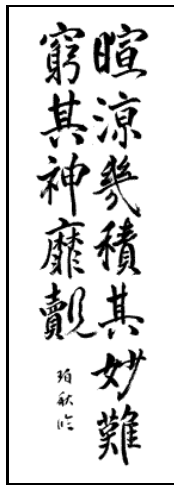 暄涼幾積其妙難
窮其神靡覿
秋臨